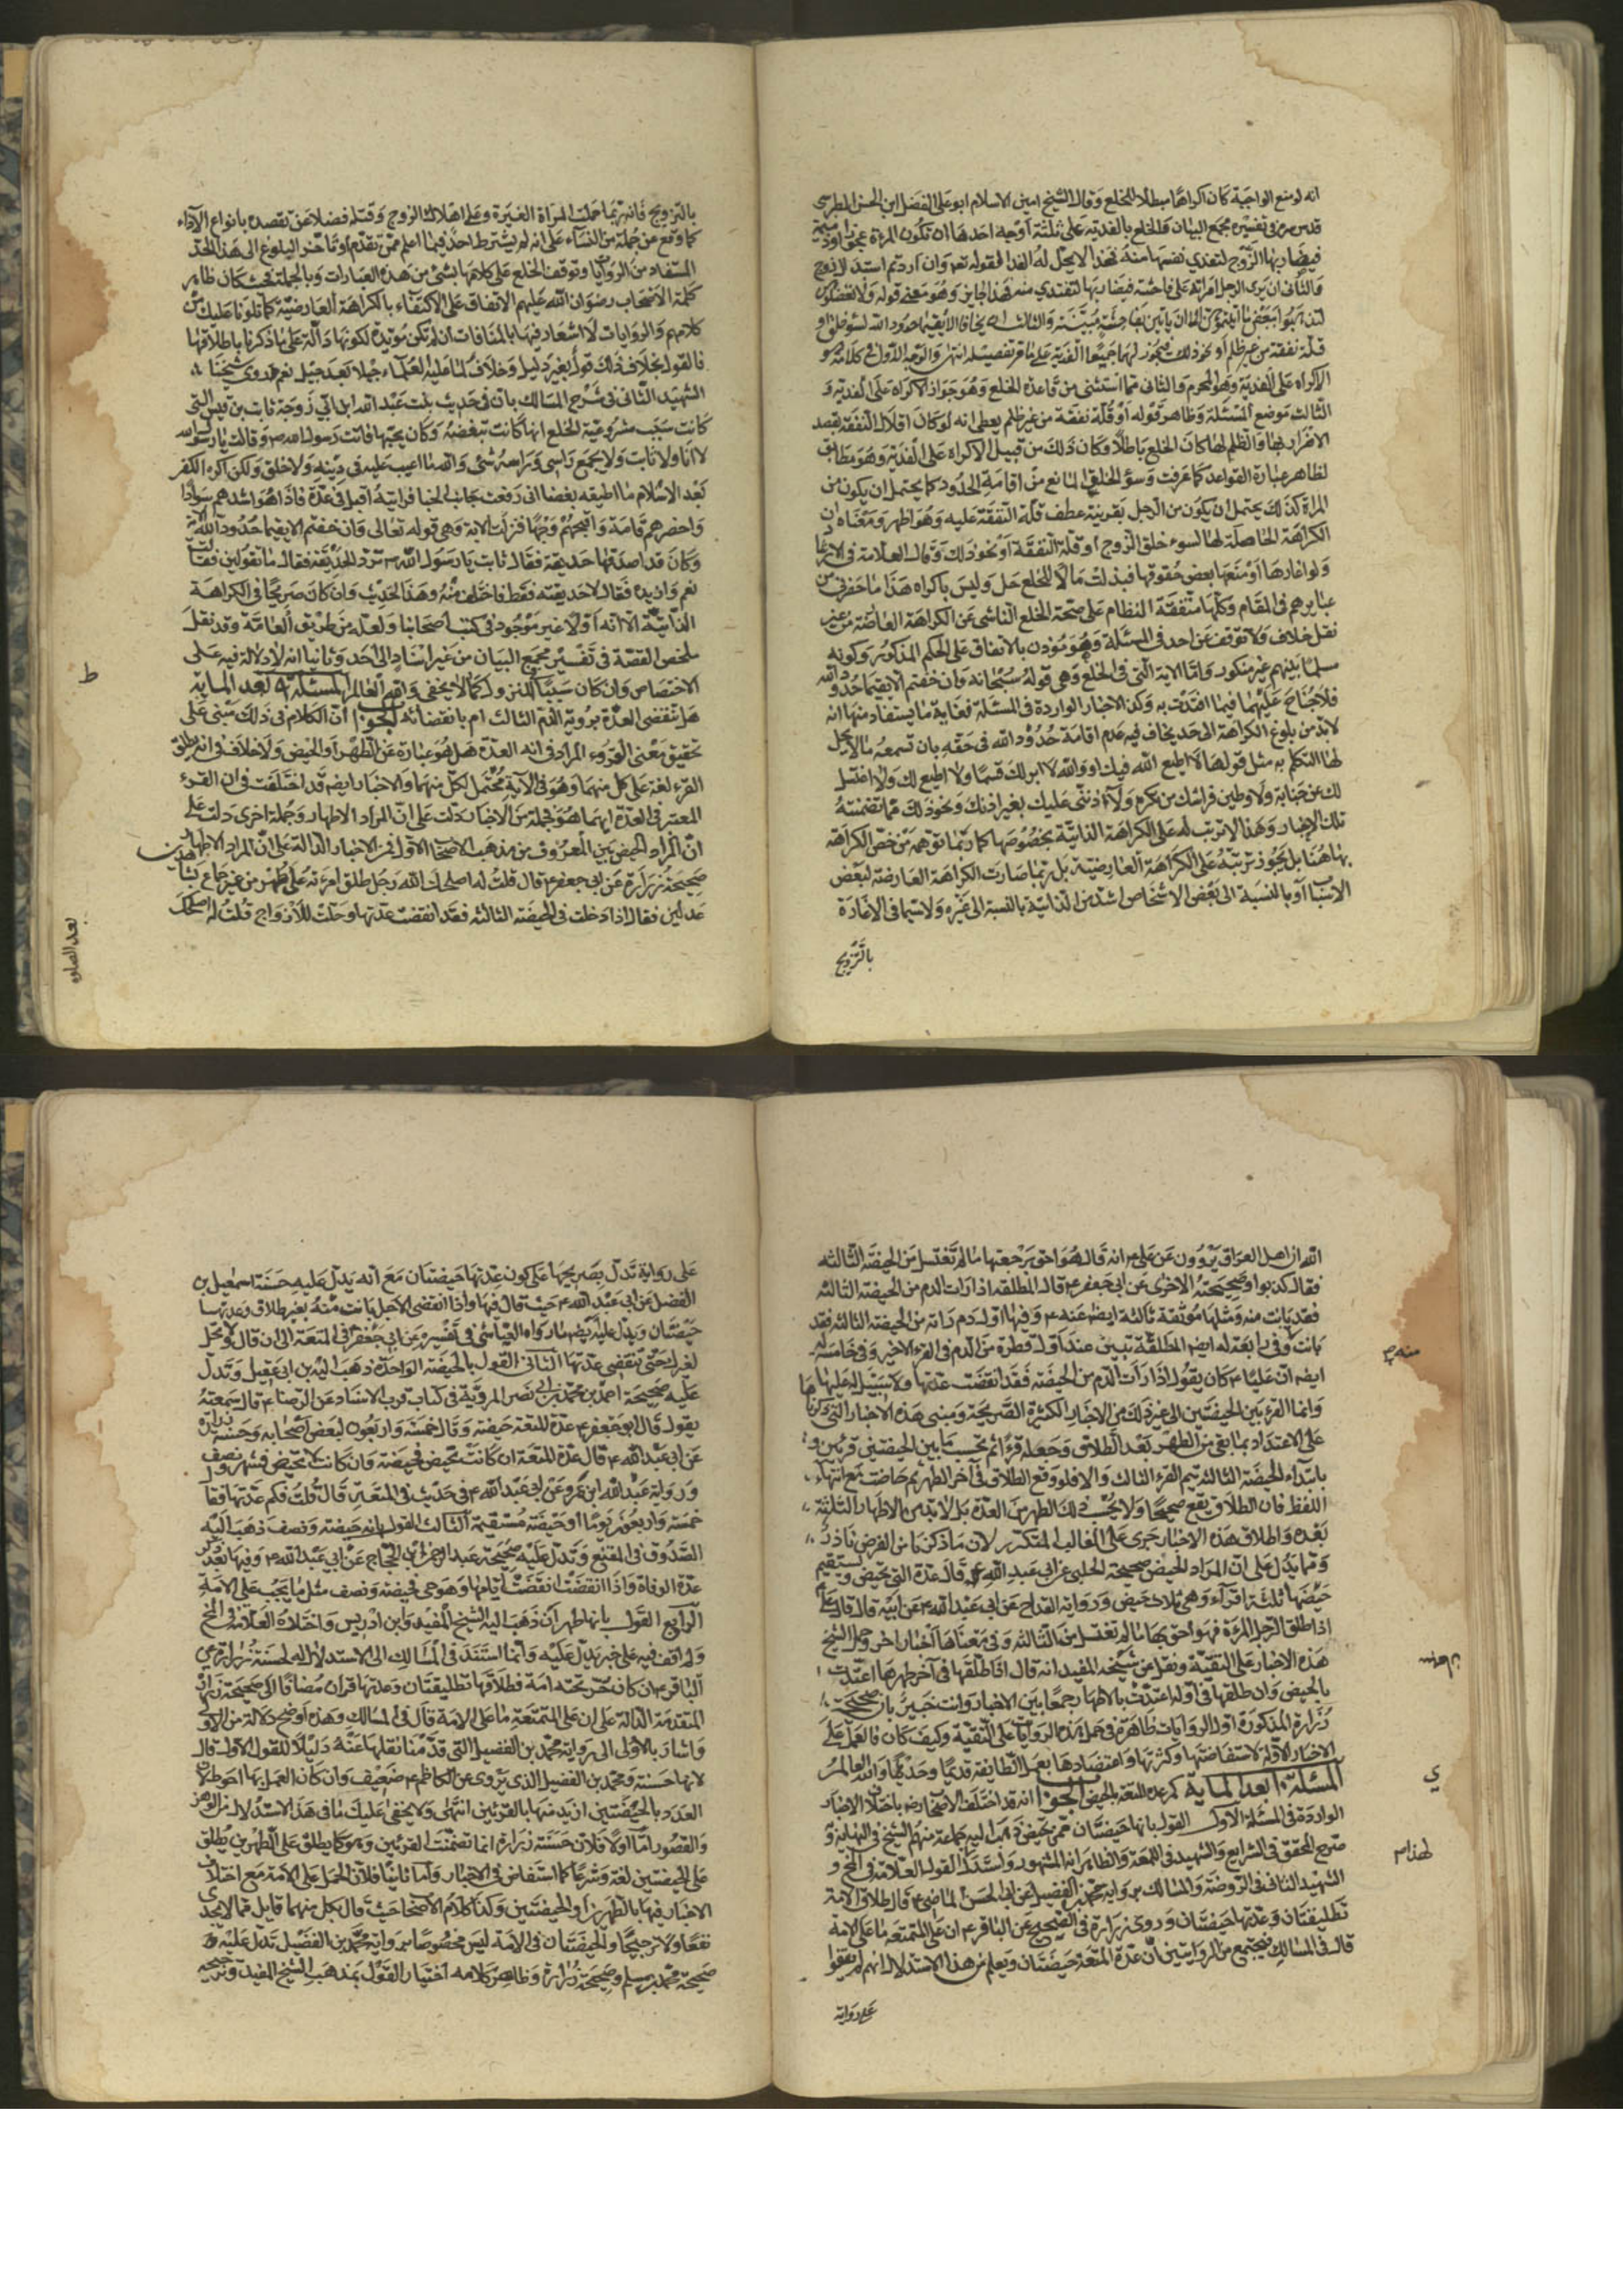 انه لو منع الواجبة كان اكراها مبطلا للخلع وقال الشيخ امين الاسلام ابو على الفضل ابن الحسن الطبرسى
قدس سره فى تفسيره مجمع البيان والخلع بالفدية على ثلثة اوجه احدها ان تكون المراة عجوزا او دميمة
فيضار بها الزوج لتفدي نفسها منه فهذا لا يحل له الفدا لقوله تعم وان اردتم استبدال زوج
والثانى ان يرى الرجل امراته على فاحشة فيضار بها لتفتدي منه فهذا جايز وهو معنى قوله ولا تعضلوهن
لتذهبوا ببعض ما اتيتموهن الا ان ياتين بفاحشة مبينة والثالث ان يخافا الا يقيما حدود الله لسوء خلق او
قلة نفقة من غير ظلم او نحو ذلك فيجوز لهما جميعا الفدية على ما مر تفصيله انتهى والوجه الاول فى كلامه هو
الاكراه على الفدية وهو المحرم والثانى مما استثنى من قاعدة الخلع وهو جواز الاكراه على الفدية و
الثالث موضع المسئلة وظاهر قوله او قلة نفقة من غير ظلم يعطى انه لو كان اقلال النفقة بقصد
الاضرار بها والظلم لها كان الخلع باطلا وكان ذلك من قبيل الاكراه على الفدية وهو مطابق
لظاهر عبارة القواعد كما عرفت وسوء الخلق المانع من اقامة الحدود كما يحتمل ان يكون من
المراة كذلك يحتمل ان يكون من الرجل بقرينة عطف قلة النفقة عليه وهو اظهر ومعناه ان
الكراهة الحاصلة لها لسوء خلق الزوج او قلة النفقة او نحو ذلك وقال العلامة فى الارشاد
ولو اغارها او منعها بعض حقوقها فبذلت مالا للخلع حل وليس باكراه هذا ما حضرنى من
عبايرهم فى المقام وكلها متفقة النظام على صحة الخلع الناشى عن الكراهة العارضة من غير
نقل خلاف ولا توقف عن احد فى المسئلة وهو موذن بالاتفاق على الحكم المذكور وكونه
مسلما بينهم غير منكور واما الاية التى فى الخلع وهى قوله سبحانه فان خفتم الا يقيما حدود الله
فلا جناح عليهما فيما افتدت به وكذا الاخبار الواردة فى المسئلة فغاية ما يستفاد منها انه
لابد من بلوغ الكراهة الى حد يخاف فيه عدم اقامة حدود الله فى حقه بان تسمعه ما لا يحل
لها التكلم به مثل قولها لا اطيع الله فيك او والله لا ابر لك قسما ولا اطيع لك ولا اغتسل
لك عن جنابة ولاوطين فراشك من تكره ولآذنن عليك بغير اذنك ونحو ذلك مما تضمنته
تلك الاخبار وهذا لا ترتب له على الكراهة الذاتية بخصوصها كما ربما توهمه من خص الكراهة
بها هنا بل يجوز ترتبه على الكراهة العارضية بل ربما صارت الكراهة العارضة لبعض
الاسباب او بالنسبة الى بعض الاشخاص اشد من الذاتية بالنسبة الى غيره ولا سيما فى الاغارة
بالتزويج
بالتزويج فانه ربما حملت المراة الغيرة على اهلاك الزوج وقتله فضلا عن تقصده بانواع الآذاء
كما وقع عن جملة من النساء على انه لم يشترط احد فيما اعلم ممن تقدم او تاخر البلوغ الى هذا الحد
المستفاد من الروايات وتوقف الخلع على كلامها بشئ من هذه العبارات وبالجملة فحيث كان ظاهر
كلمة الاصحاب رضوان الله عليهم الاتفاق على الاكتفاء بالكراهة العارضية كما تلوناه عليك من
كلامهم والروايات لا اشعار فيها بالمنافات ان لم تكن مؤيدة لكونها دالة على ما ذكرنا باطلاقها
فالقول بخلاف ذلك قول بغير دليل وخلاف لما عليه العلماء جيلا بعد جيل نعم قد روى شيخنا
الشهيد الثانى فى شرح المسالك بان فى حديث بنت عبد الله ابن ابي زوجة ثابت بن قيس التى
كانت سبب مشروعية الخلع انها كانت تبغضه وكان يحبها فاتت رسول الله ص وقالت يا رسول الله
لا انا ولا ثابت ولا يجمع راسى وراسه شئ والله ما اعيب عليه فى دينه ولا خلق ولكن اكره الكفر
بعد الاسلام ما اطيقه بغضا انى رفعت جانب الخبا فرايته اقبل فى عدة فاذا هو اشدهم سوادا
واحضرهم قامة واقبحهم وجها فنزلت الاية وهى قوله تعالى وان خفتم الا يقيما حدود الله الاية
وكان قد اصدقها حديقة فقال ثابت يا رسول الله ص ترد الحديقة فقال ما تقولين فقالت
نعم وازيده فقال لا حديقته فقط فاختلعت منه وهذا الحديث وان كان صريحا فى الكراهة
الذاتية الا انه اولا غير موجود فى كتب اصحابنا ولعله من طريق العامة وقد نقل
ملخص القصة فى تفسير مجمع البيان من غير اسناد الى احد وثانيا انه لا دلالة فيه على
الاختصاص وان كان سببا للنزول كما لا يخفى والله العالم المسئلة ٩ بعد المايه
هل تنقضى العدة بروية الدم الثالث ام بانقضائه الجواب ان الكلام فى ذلك مبنى على
تحقيق معنى القروء المراد فى انه العدة هل هو عبارة عن الطهر او الحيض ولا خلاف فى انه يطلق
القرء لغة على كل منهما وهو فى الآية محتمل لكل منهما والاخبار ايضه قد اختلفت فى ان القرء
المعتبر فى العدة ايهما هو فجملة من الاخبار دلت على ان المراد الاطهار وجملة اخرى دلت على
ان المراد الحيض بين المعروف من مذهب الاصحاب الاول فمن الاخبار الدالة على ان المراد الاطهار
صحيحة زرارة عن ابى جعفر ع قال قلت له اصلحك الله رجل طلق امرءته على طهر من غير جماع بشهادة
عدلين فقال اذا دخلت فى الحيضة الثالثة فقد انقضت عدتها وحلت للازواج قلت له اصلحك
ط
بعد الصلوه
الله ان اهل العراق يروون عن على ع انه قال هو احق برجعتها ما لم تغتسل من الحيضة الثالثه
فقال كذبوا وصحيحته الاخرى عن ابى جعفر ع قال المطلقه اذا رات الدم من الحيضة الثالثه
فقد بانت منه ومثلها موثقة ثالثة ايضه عنه ع وفيها اول دم راته من الحيضة الثالثه فقد
بانت وفى رابعة له ايضه المطلقة تبين عند اول قطرة من الدم فى القرء الاخير وفى خامسة له
ايضه ان عليا ع كان يقول اذا رات الدم من الحيضة فقد انقضت عدتها ولا سبيل له عليها
وانما القرء بين الحيضتين الى غير ذلك من الاخبار الكثيرة الصريحة ومبنى هذه الاخبار التى ذكرناها
على الاعتداد بما بقى من الطهر بعد الطلاق وجعله قرءا ثم تحسب ما بين الحيضتين قرئين و
بابتداء الحيضة الثالثه يتم القرء الثالث والا فلو وقع الطلاق فى آخر الطهر ثم حاضت مع انتهاء
اللفظ فان الطلاق يقع صحيحا ولا يحسب ذلك الطهر من العدة بل لا بد من الاطهار الثلثة
بعده واطلاق هذه الاخبار جرى على الغالب المتكرر لان ما ذكرنا من الفرض نادر
ومما يدل على ان المراد الحيض صحيحة الحلبى عن ابى عبد الله ع قال عدة التى تحيض ويستقيم
حيضها ثلثة اقراء وهى ثلاث حيض ورواية القداح عن ابى عبد الله ع عن ابيه قال قال على ع
اذا طلق الرجل المرءة فهو احق بها ما لم تغتسل من الثالثه وفى معناها اخبار اخر وحمل الشيخ
هذه الاخبار على التقية ونقل عن شيخه المفيد انه قال اذا طلقها فى آخر طهرها اعتدت
بالحيض وان طلقها فى اوله اعتدت بالاطهار جمعا بين الاخبار وانت خبير بان صحيحة
زرارة المذكورة اول الروايات ظاهرة فى حمل هذه الروايات على التقية وكيف كان فالعمل على
الاخبار الاولة لاستفاضتها وكثرتها واعتضادها بعمل الطائفة قديما وحديثا والله العالم
المسئلة ١٠ بعد المايه كم عدة المتعة بالحيض الجواب انه قد اختلف الاصحاب رضه باختلاف الاخبار
الواردة فى المسئلة الاول القول بانها حيضتان ممن تحيض ذهب اليه جماعة منهم الشيخ فى النهاية و
صرح المحقق فى الشرايع والشهيد فى اللمعة والظاهر انه المشهور واستدل لهذا القول العلامة فى المخ و
الشهيد الثانى فى الروضة والمسالك برواية محمد بن الفضيل عن ابى الحسن الماضى ع قال طلاق الامة
تطليقتان وعدتها حيضتان وروى زرارة فى الصحيح عن الباقر ع ان على المتمتعة ما على الامة
قال فى المسالك فيجتمع من الروايتين ان عدة المتعة حيضتان ويعلم من هذا الاستدلال انهم لم يقفوا
على رواية
ى
على رواية تدل بصريحها على كون عدتها حيضتان مع انه يدل عليه حسنة اسمعيل بن
الفضل عن ابى عبد الله ع حيث قال فيها واذا انقضى الاجل بانت منه بغير طلاق وعدتها
حيضتان ويدل عليه ايضه ما رواه العياشى فى تفسيره عن ابى جعفر ع فى المتعة الى ان قال ولا تحل
لغيرك حتى تنقضى عدتها الثانى القول بالحيضة الواحدة ذهب اليه بن ابى عقيل وتدل
عليه صحيحة احمد بن محمد بن ابى نصر المروية فى كتاب قرب الاسناد عن الرضا ع قال سمعته
يقول قال ابو جعفر ع عدة المتعة حيضة وقال خمسة واربعون لبعض اصحابه وحسنة زرارة
عن ابى عبد الله ع قال عدة المتعة ان كانت تحيض فحيضة وان كانت لا تحيض فشهر ونصف
ورواية عبد الله ابن عمرو عن ابى عبد الله ع فى حديث فى المتعة قال قلت فكم عدتها فقال
خمسة واربعون يوما او حيضة مستقيمة الثالث القول بانه حيضة ونصف ذهب اليه
الصدوق فى المقنع وتدل عليه صحيحة عبد الرحمن بن الحجاج عن ابى عبد الله ع وفيها بعد ذكر
عدة الوفاة واذا انقضت ايامها وهو حى فحيضة ونصف مثل ما يجب على الامة
الرابع القول بانها طهران ذهب اليه الشيخ المفيد وابن ادريس واختاره العلامة فى المخ
ولم اقف فيه على خبر يدل عليه وانما استند فى المسالك الى الاستدلال له لحسنة زرارة عن
الباقر ع ان كان حر تحته امة فطلاقها تطليقتان وعدتها قران مضافا الى صحيحة زرارة
المتقدمة الدالة على ان على المتمتعة ما على الامة قال فى المسالك وهذه اوضح دلالة من الاولى
واشار بالاولى الى رواية محمد بن الفضيل التى قدمنا نقلها عنه دليلا للقول الاول قال
لانها حسنة ومحمد بن الفضيل الذى يروى عن الكاظم ع ضعيف وان كان العمل بها احوط لان
العدد بالحيضتين ازيد منها بالقرئين انتهى ولا يخفى عليك ما فى هذا الاستدلال من الوهن
والقصور اما اولا فلان حسنة زرارة انما تضمنت القرئين وهو كما يطلق على الطهرين يطلق
على الحيضتين لغة وشرعا كما استفاض فى الاخبار واما ثانيا فلان الحمل على الامة مع اختلاف
الاخبار فيها بالطهرين او الحيضتين وكذا كلام الاصحاب حيث قال بكل منهما قايل مما لا يجدى
نفعا ولا ترجيحا والحيضتان فى الامة ليس مخصوصا برواية محمد بن الفضيل تدل عليه
صحيحة محمد بن مسلم وصحيحة زرارة وظاهر كلامه اختيار القول بمذهب الشيخ المفيد وترجيحه